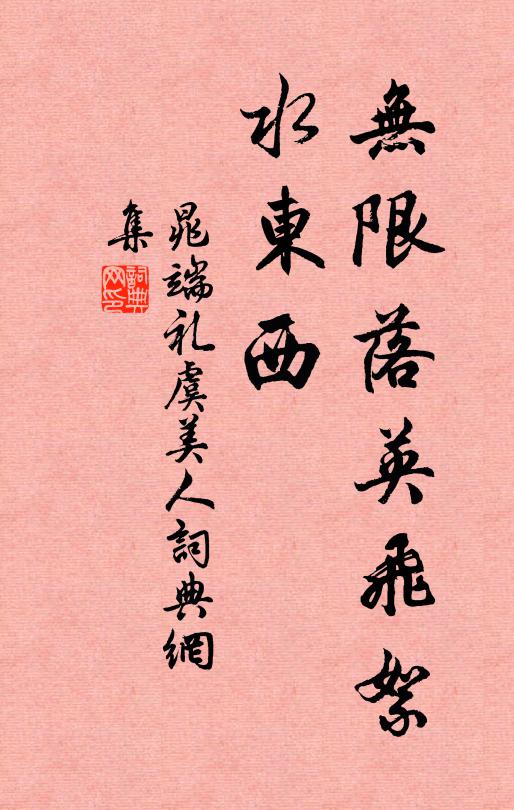 無限落英飛絮
水東西
晁端礼虞美人詞典網
集
詞典
网印